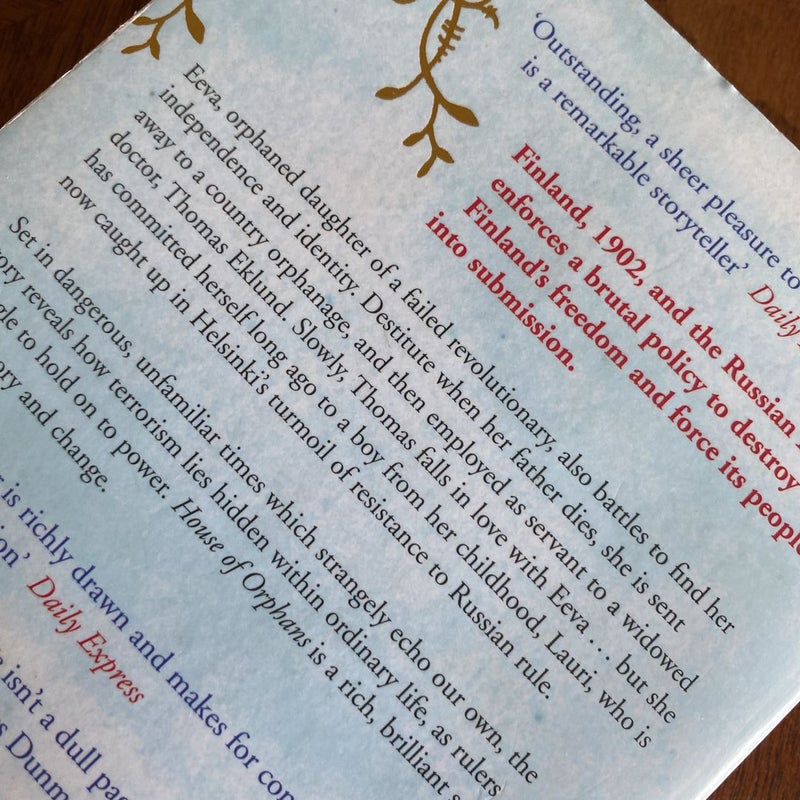 'Outstanding, a sheer pleasure to
is a remarkable storyteller' Daily
Finland, 1902, and the Russian
enforces a brutal policy to destroy
Finland's freedom and force its people
into submission.
Eeva, orphaned daughter of a failed revolutionary, also battles to find her
independence and identity. Destitute when her father dies, she is sent
away to a country orphanage, and then employed as servant to a widowed
doctor, Thomas Eklund. Slowly, Thomas falls in love with Eeva . . . but she
has committed herself long ago to a boy from her childhood, Lauri, who is
now caught up in Helsinki's turmoil of resistance to Russian rule.
Set in dangerous, unfamiliar times which strangely echo our own, the
reveals how terrorism lies hidden within ordinary life, as rulers
to hold on to power. House of Orphans is a rich, brilliant
and change.
is richly drawn and makes for
Daily Express
isn't a dull